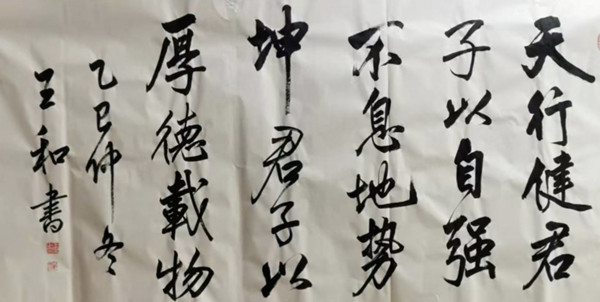 天行健君
子以自强
不息地势
坤君子以
厚德載物
乙巳仲冬
王和書